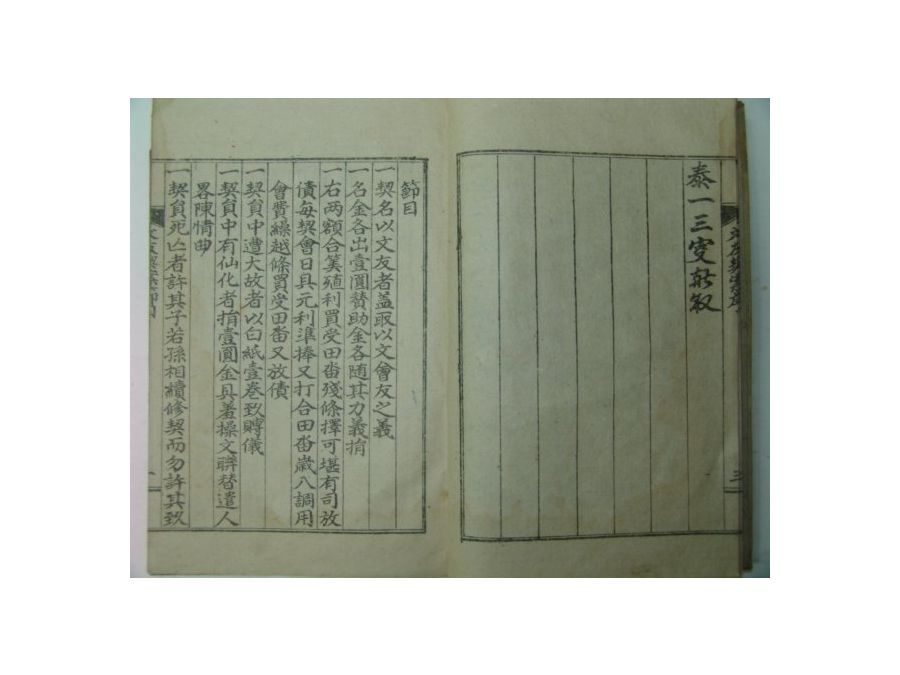 泰一三變新叙
三
節目
一契名以文友者盖取以文會友之義
一名金各出壹圓賛助金各随其力義捐
一右两額合筭殖利買受田畓殘條擇可堪有司放
債每契會日具元利準捧又打合田畓歲入調用
會費繰越條買受田畓又放債
一契員中遭大故者以白紙壹巻致賻儀
一契員中有仙化者捐壹圓金具羞操文聨替遣人
畧陳情曲
一契員死亡者許其子若孫相續修契而勿許其致